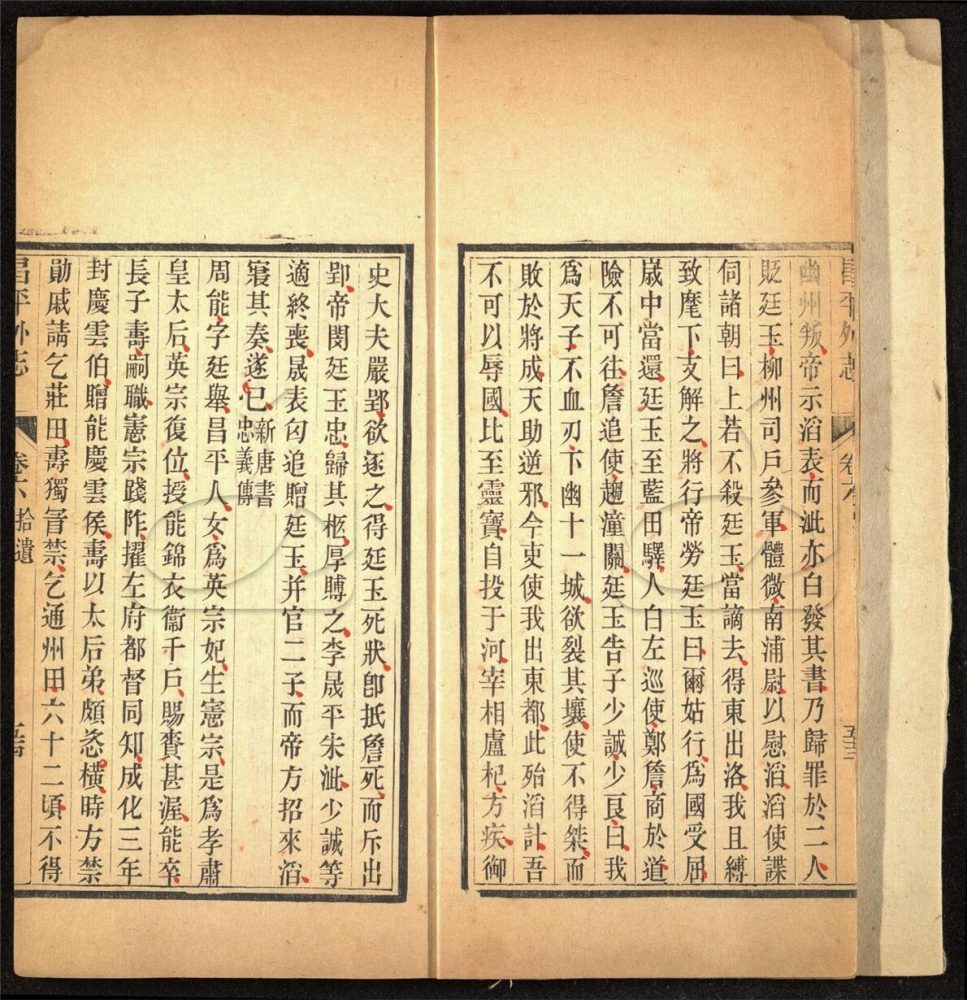 昌平外志
卷六
五十三
幽州叛帝示滔表而泚亦白發其書乃歸罪於二人
貶廷玉柳州司戶參軍體微南浦尉以慰滔滔使諜
伺諸朝曰上若不殺廷玉當謫去得東出洛我且縛
致麾下支解之將行帝勞廷玉曰爾姑行為國受屈
歲中當還廷玉至藍田驛人白左巡使鄭詹商於道
險不可往詹追使趨潼關廷玉告子少誠少良曰我
為天子不血刃下幽十一城欲裂其壤使不得桀而
敗於將成天助逆邪今吏使我出東都此殆滔計吾
不可以辱國比至靈寶自投于河宰相盧杞方疾御
史大夫嚴郢欲逐之得廷玉死狀卽抵詹死而斥出
郢帝閔廷玉忠歸其柩厚賻之李晟平朱泚少誠等
適終喪晟表匄追贈廷玉并官二子而帝方招來滔
寢其奏遂已新唐書
忠義傳
周能字廷舉昌平人女為英宗妃生憲宗是為孝肅
皇太后英宗復位授能錦衣衞千戶賜賚甚渥能卒
長子壽嗣職憲宗踐阼擢左府都督同知成化三年
封慶雲伯贈能慶雲侯壽以太后弟頗恣橫時方禁
勛戚請乞莊田壽獨冒禁乞通州田六十二頃不得
昌平外志
卷六 拾遺